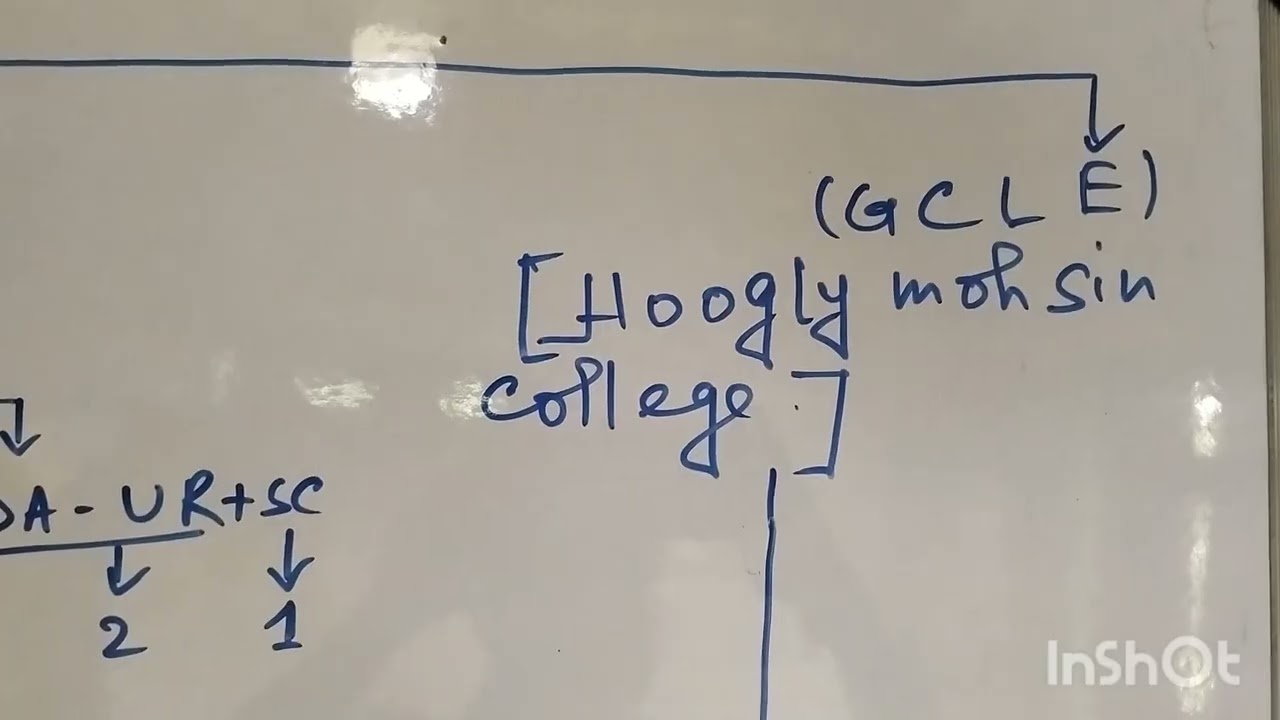 (GCLE)
[Hoogly mohsin
college]
A - UR+SC
2 1
InShOt